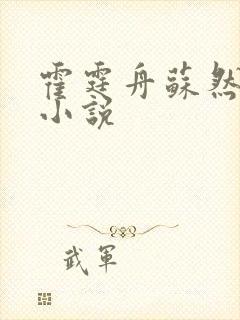 霍霆舟蘇然
小說
武軍